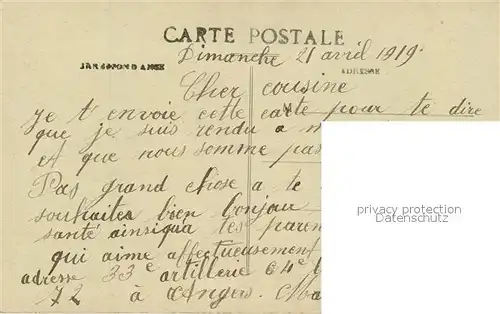 CARTE POSTALE
Dimanche 21 avril 1919.
ADRESSE
Cher cousine
Je t envoie cette carte pour te dire
que je suis rendu a
et que nous somme pas
Pas grand chose a te
souhaites bien bonjour
santé ainsique tes paren
qui aime affectueusement
adresse 33e artillerie 64e
72 à Angers.
privacy protection
Datenschutz